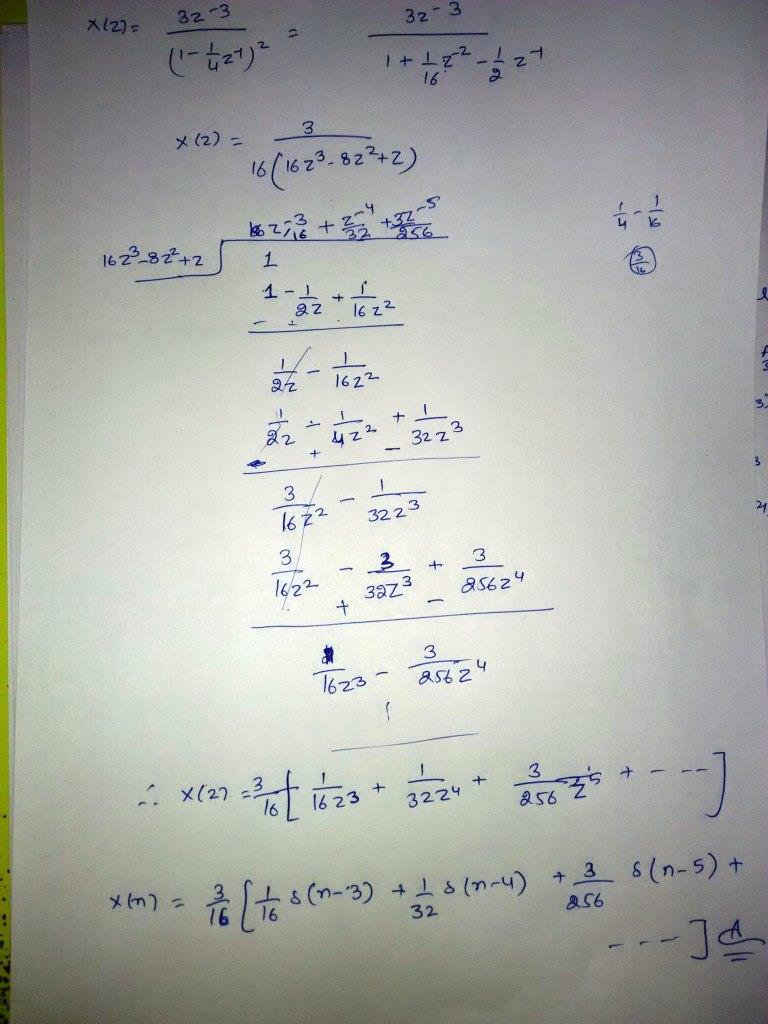 x(z) = 3z⁻³ / (1 - 1/4 z⁻¹)² = 3z⁻³ / 1 + 1/16 z⁻² - 1/2 z⁻¹
x(z) = 3 / 16(16z³ - 8z² + z)
z⁻³/16 + z⁻⁴/32 + 3z⁻⁵/256
1/4 - 1/16
16z³ - 8z² + z
1
3/16
1 - 1/2z + 1/16z²
- +
1/2z - 1/16z²
1/2z - 1/4z² + 1/32z³
- + -
3/16z² - 1/32z³
3/16z² - 3/32z³ + 3/256z⁴
+ -
1/16z³ - 3/256z⁴
∴ x(z) = 3/16 [ 1/16z³ + 1/32z⁴ + 3/256 z⁵ + - - - ]
x(n) = 3/16 [ 1/16 δ(n-3) + 1/32 δ(n-4) + 3/256 δ(n-5) +
- - - ] A